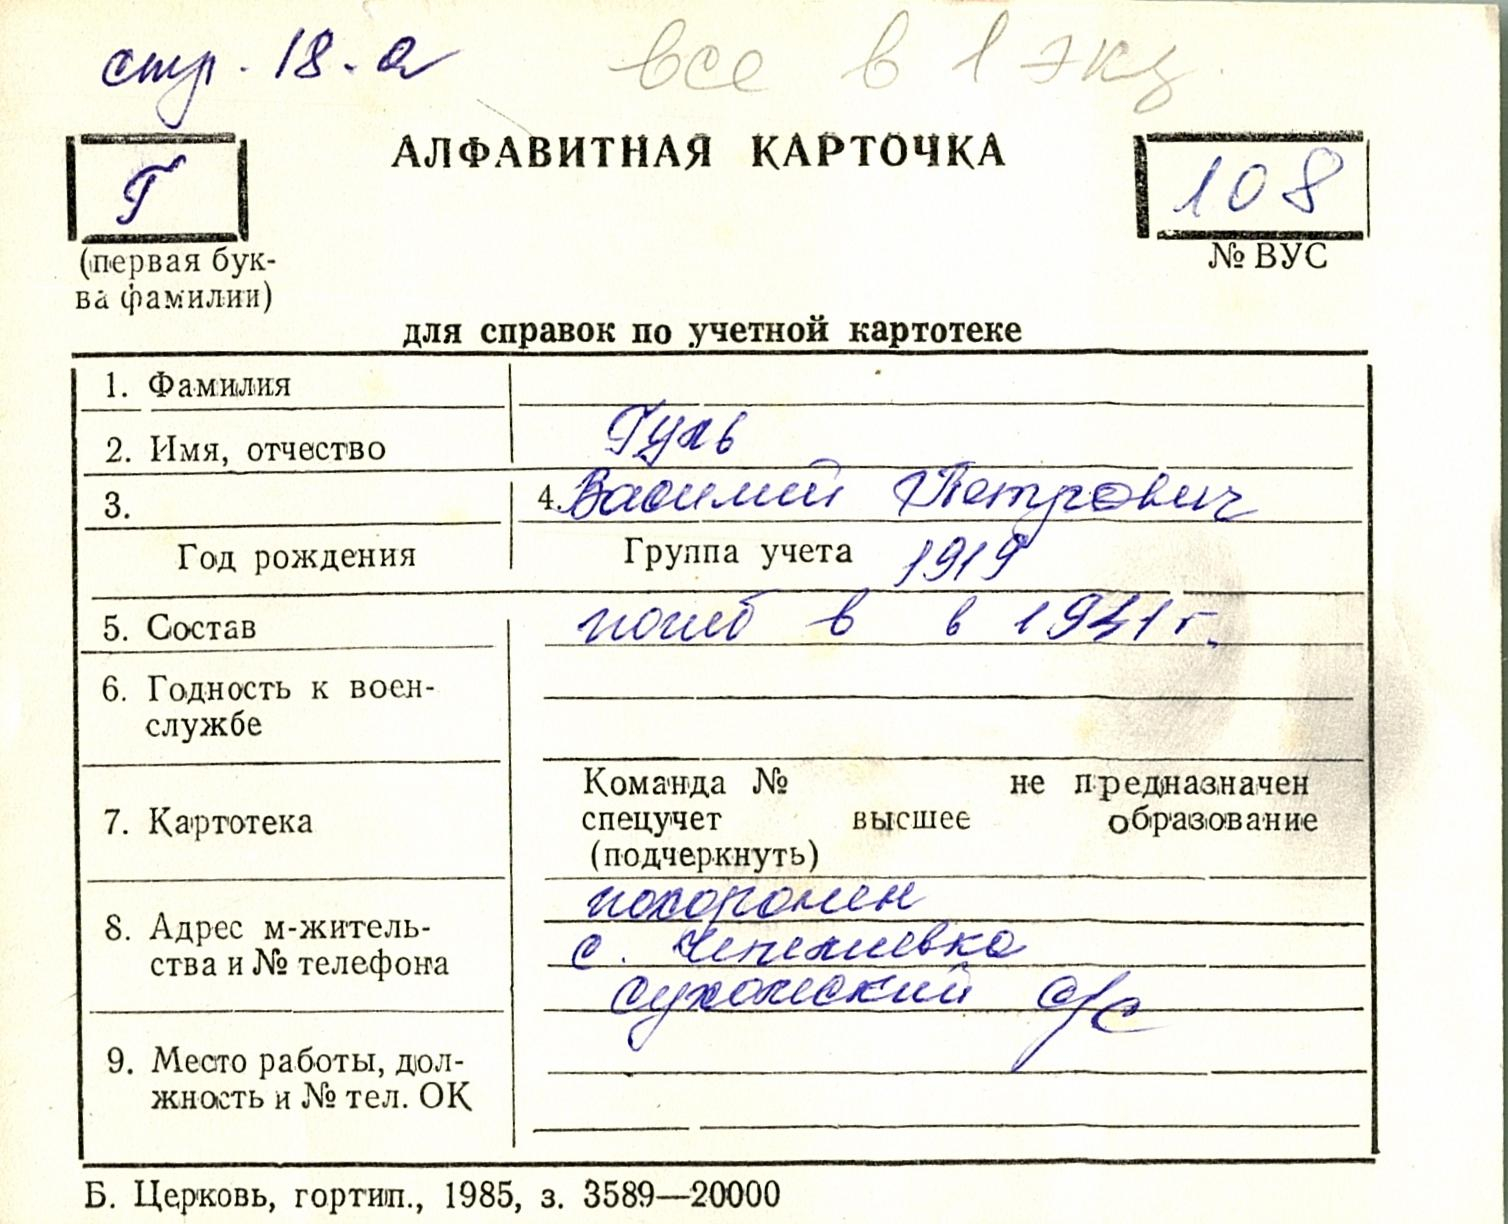 стр. 18-а
все в 1 экз.
АЛФАВИТНАЯ КАРТОЧКА
Г
108
(первая бук-
ва фамилии)
№ ВУС
для справок по учетной картотеке
1. Фамилия
2. Имя, отчество
Гуль
3.
4. Василий Петрович
Год рождения
Группа учета 1919
5. Состав
погиб в в 1941 г.
6. Годность к воен-
службе
7. Картотека
Команда № не предназначен
спецучет высшее образование
(подчеркнуть)
8. Адрес м-житель-
ства и № телефона
похоронен
с. Чепелиевка
сухолеский с/с
9. Место работы, дол-
жность и № тел. ОК
Б. Церковь, гортип., 1985, з. 3589—20000